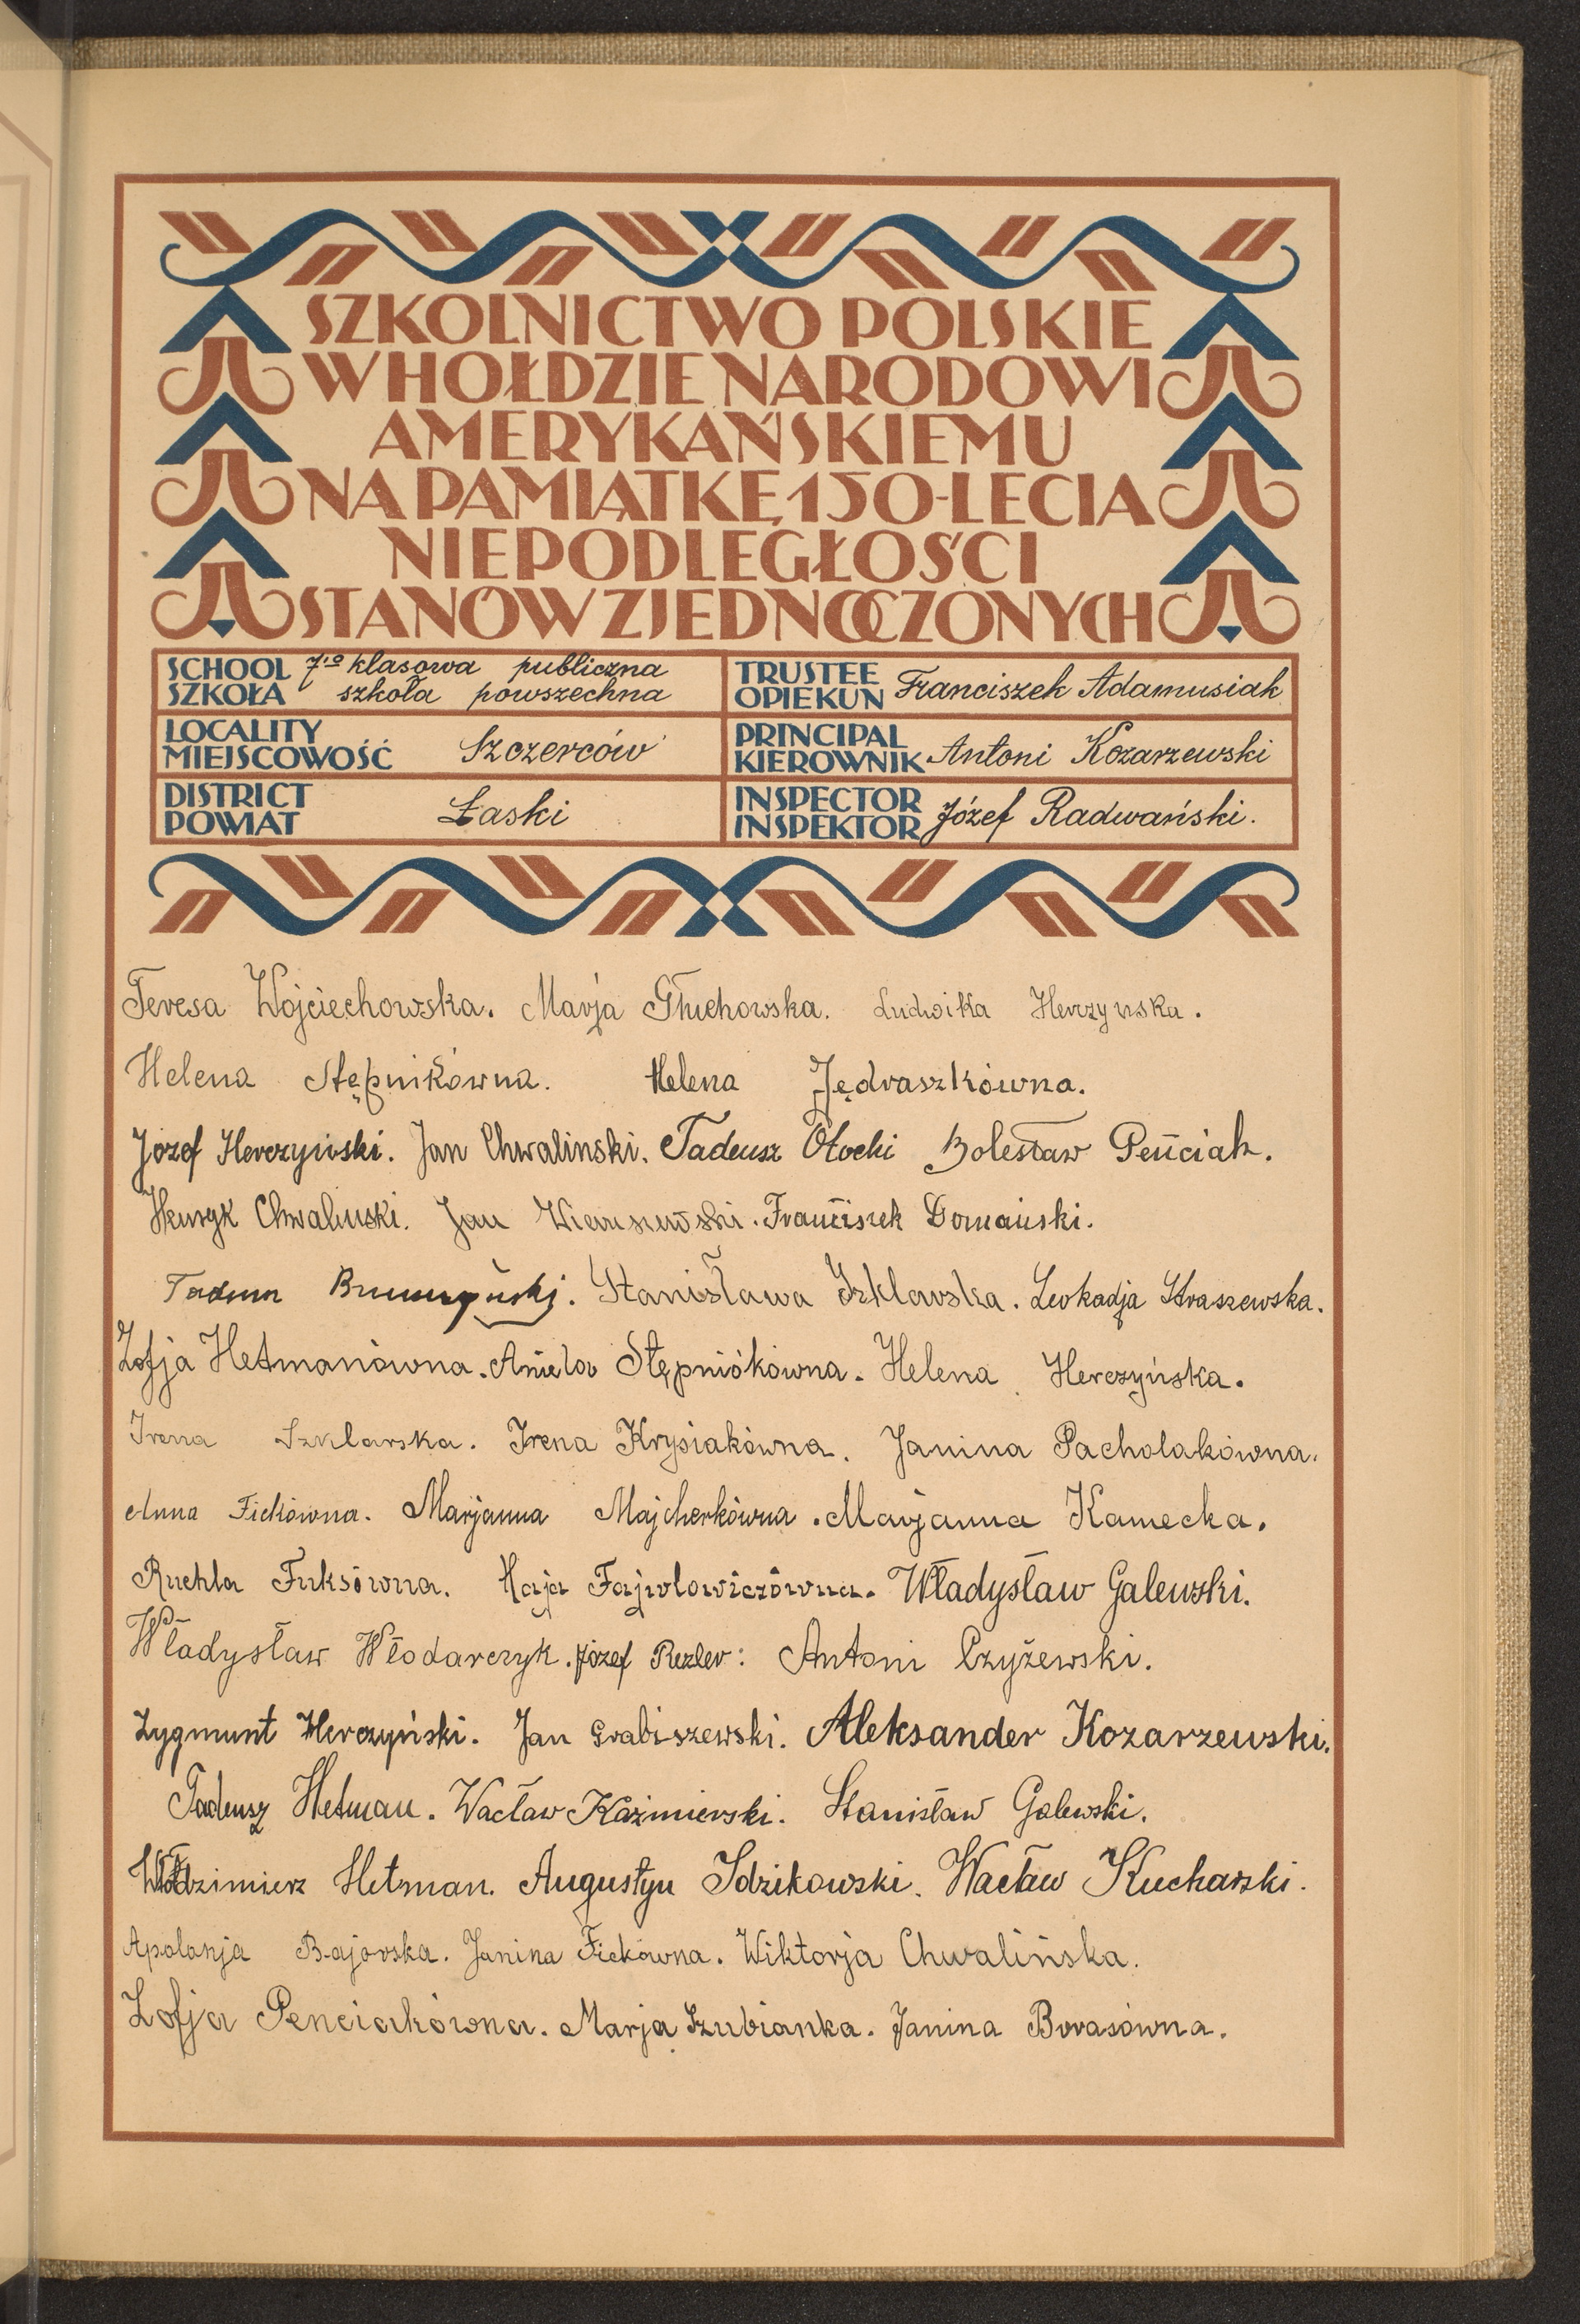 SZKOLNICTWO POLSKIE
W HOŁDZIE NARODOWI
AMERYKAŃSKIEMU
NA PAMIĄTKĘ 150-LECIA
NIEPODLEGŁOŚCI
STANÓW ZJEDNOCZONYCH
SCHOOL SZKOŁA 7'o klasowa publiczna
szkoła powszechna
TRUSTEE OPIEKUN Franciszek Adamusiak
LOCALITY MIEJSCOWOŚĆ Szczerców
PRINCIPAL KIEROWNIK Antoni Kozarzewski
DISTRICT POWIAT Łaski
INSPECTOR INSPEKTOR Józef Radwański.
Teresa Wojciechowska. Marja Głuchowska. Ludwika Herczyńska.
Helena Stępnikówna. Helena Jędraszkówna.
Józef Herczyński. Jan Chwalinski. Tadeusz Otocki Bolesław Peńciak.
Henryk Chwaliński. Jan Franciszek Domański.
Tadeusz Stanisława Szklarska. Leokadja Straszewska.
Zofja Hetmanówna. Aniela Stępniókówna. Helena Herczyńska.
Irena Szklarska. Irena Krysiakówna. Janina Pacholakówna.
Anna Fickówna. Marjanna Majcherkówna. Marjanna Kamecka.
Ruchla Fuksówna. Haja Fajwlowiczówna. Władysław Galewski.
Władysław Włodarczyk. Józef Rezler: Antoni Czyżewski.
Zygmunt Herczyński. Jan Grabiszewski. Aleksander Kozarzewski.
Tadeusz Hetman. Wacław Kaźmierski. Stanisław Galewski.
Włodzimierz Hetman. Augustyn Idzikowski. Wacław Kucharski.
Apolonja Bajorska. Janina Fickówna. Wiktorja Chwalińska.
Zofja Penciakówna. Marja Szubianka. Janina Borasówna.